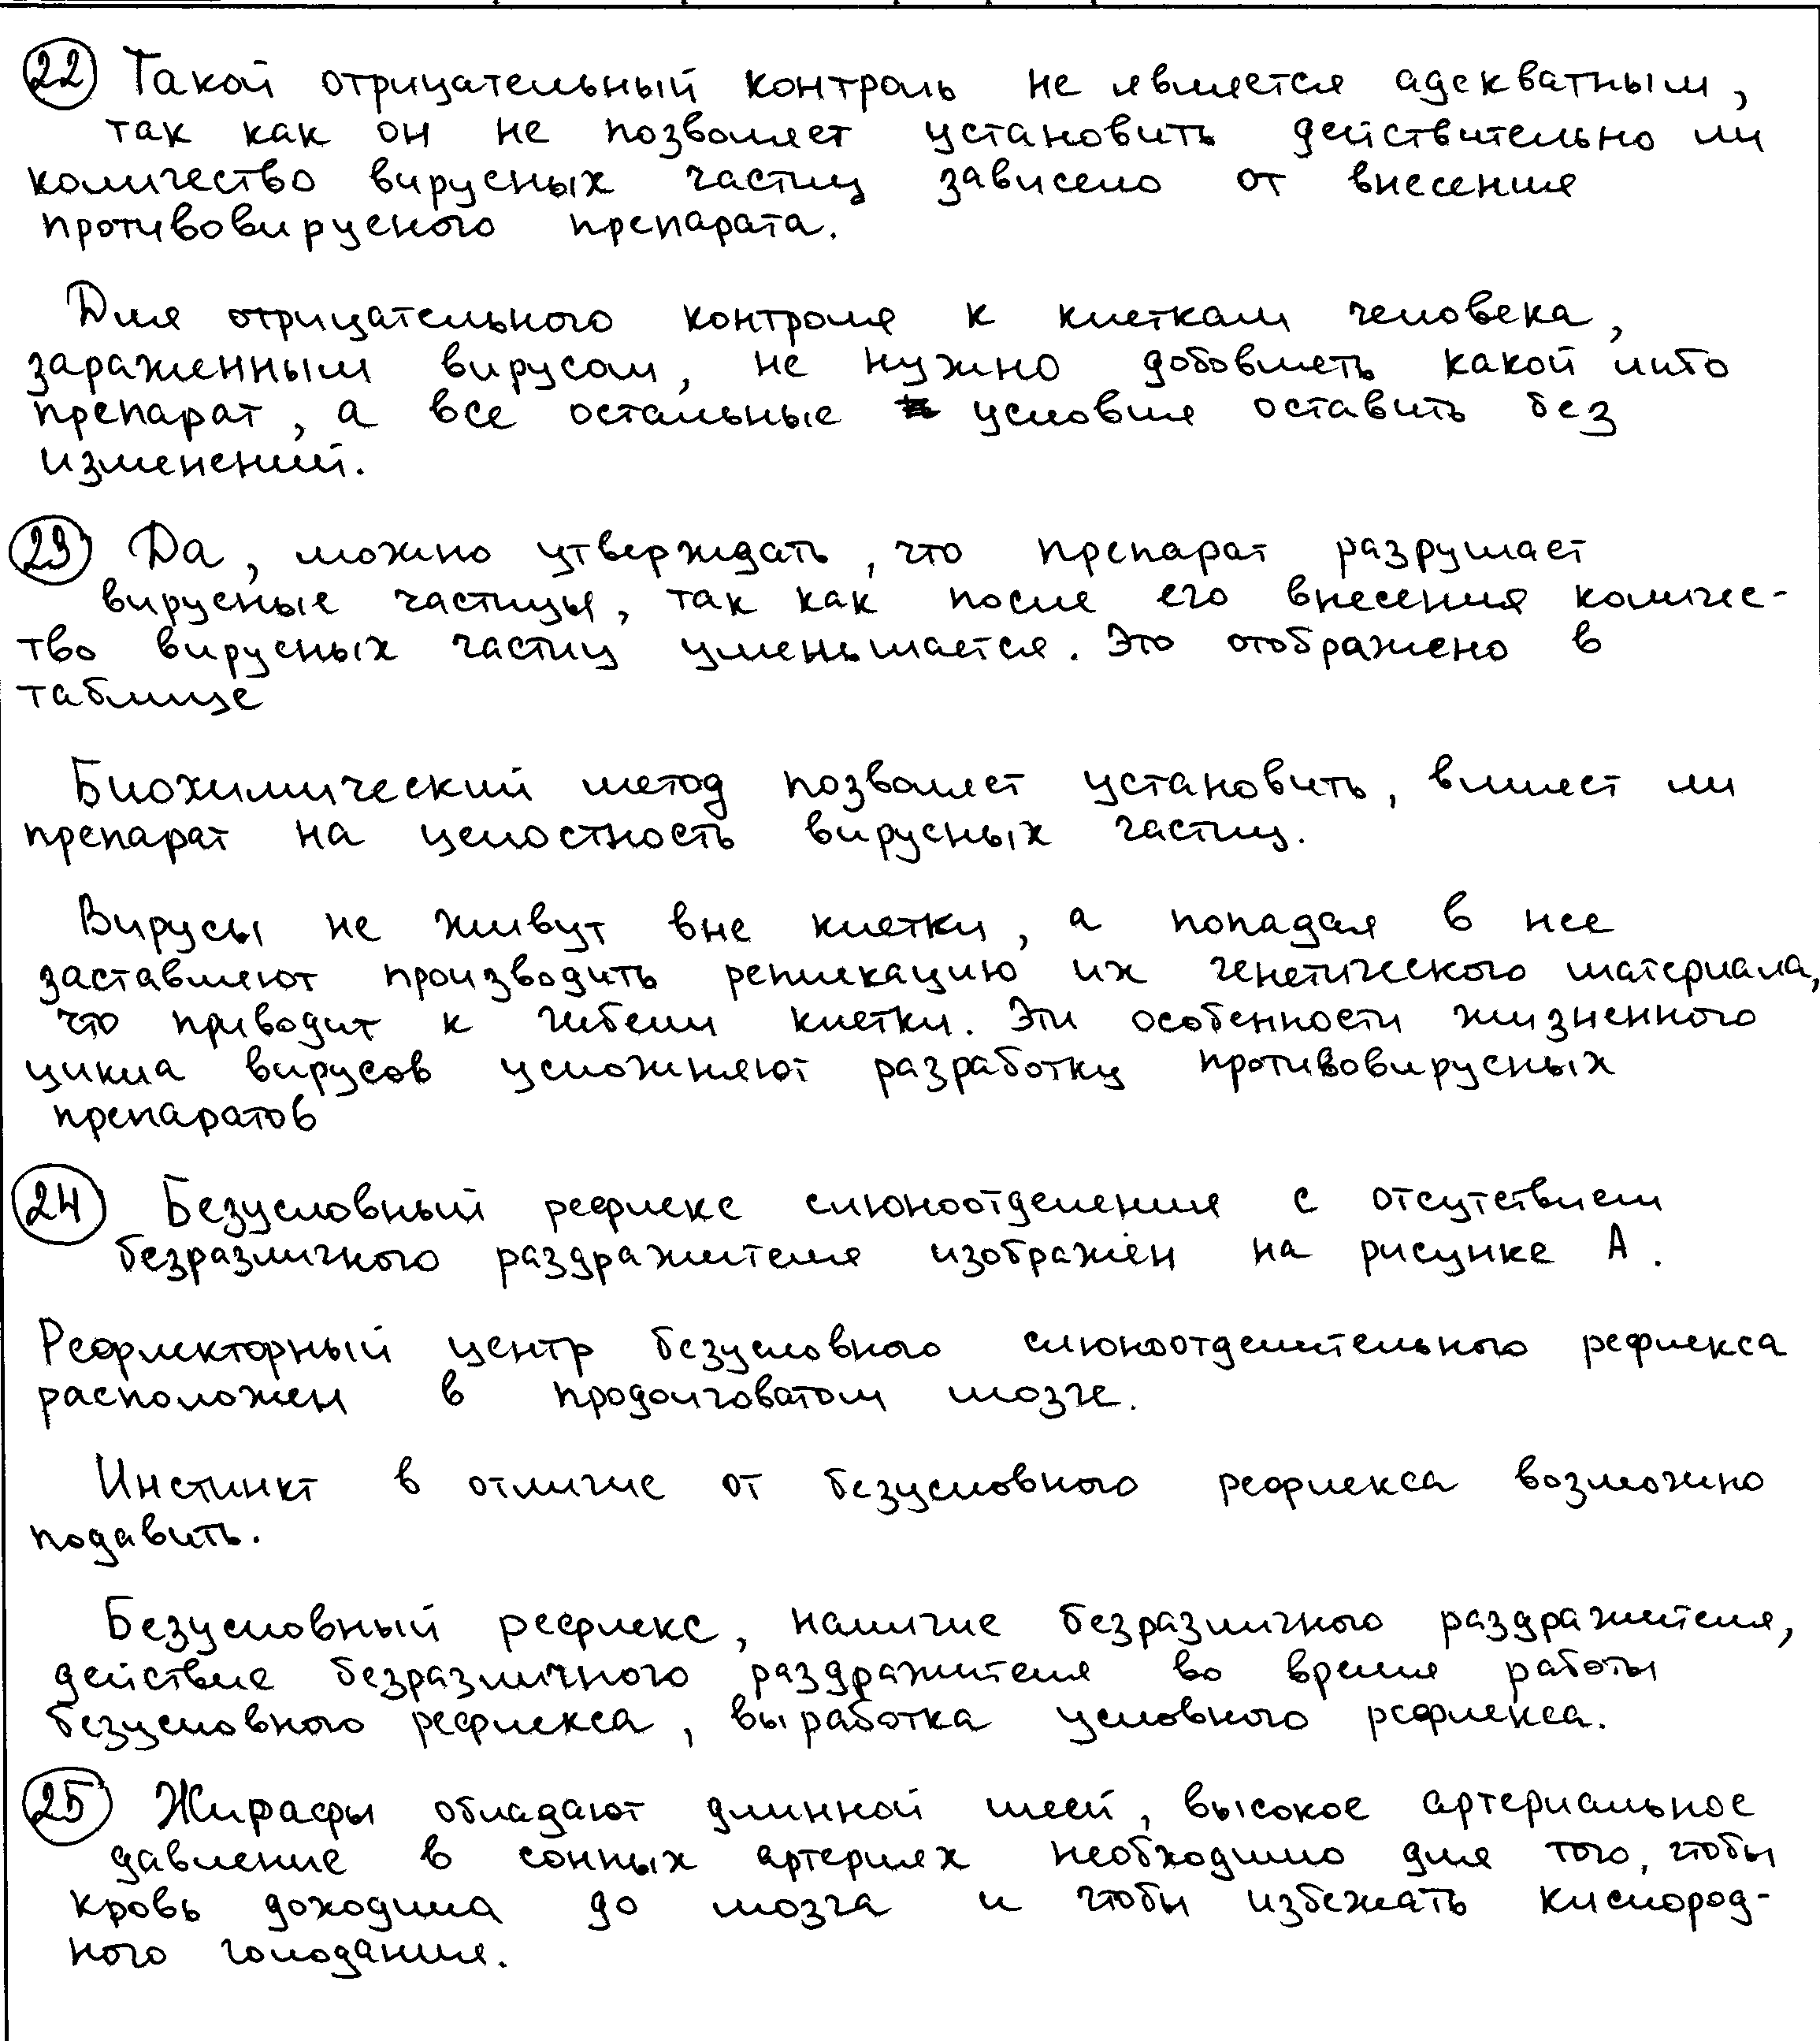 22 Такой отрицательный контроль не является адекватным,
так как он не позволяет установить действительно ли
количество вирусных частиц зависело от внесения
противовирусного препарата.
Для отрицательного контроля к клеткам человека,
зараженным вирусом, не нужно добовлеть какой либо
препарат, а все остальные условия оставить без
изменений.
23 Да, можно утверждать, что препарат разрушает
вирусные частицы, так как после его внесения количес-
тво вирусных частиц уменьшается. Это отображено в
таблице
Биохимический метод позволяет установить, влияет ли
препарат на целостность вирусных частиц.
Вирусы не живут вне клетки, а попадая в нее
заставляют производить репликацию их генетического материала,
что приводит к гибели клетки. Эти особенности жизненного
цикла вирусов усложняют разработку противовирусных
препаратов
24 Безусловный рефлекс слюноотделения с отсутствием
безразличного раздражителя изображён на рисунке А.
Рефлекторный центр безусловного слюноотделительного рефлекса
расположен в продолговатом мозге.
Инстинкт в отличие от безусловного рефлекса возможно
подавить.
Безусловный рефлекс, наличие безразличного раздражителя,
действие безразличного раздражителя во время работы
безусловного рефлекса, выработка условного рефлекса.
25 Жирафы обладают длинной шеей, высокое артериальное
давление в сонных артериях необходимо для того, чтобы
кровь доходила до мозга и чтобы избежать кислород-
ного голодания.